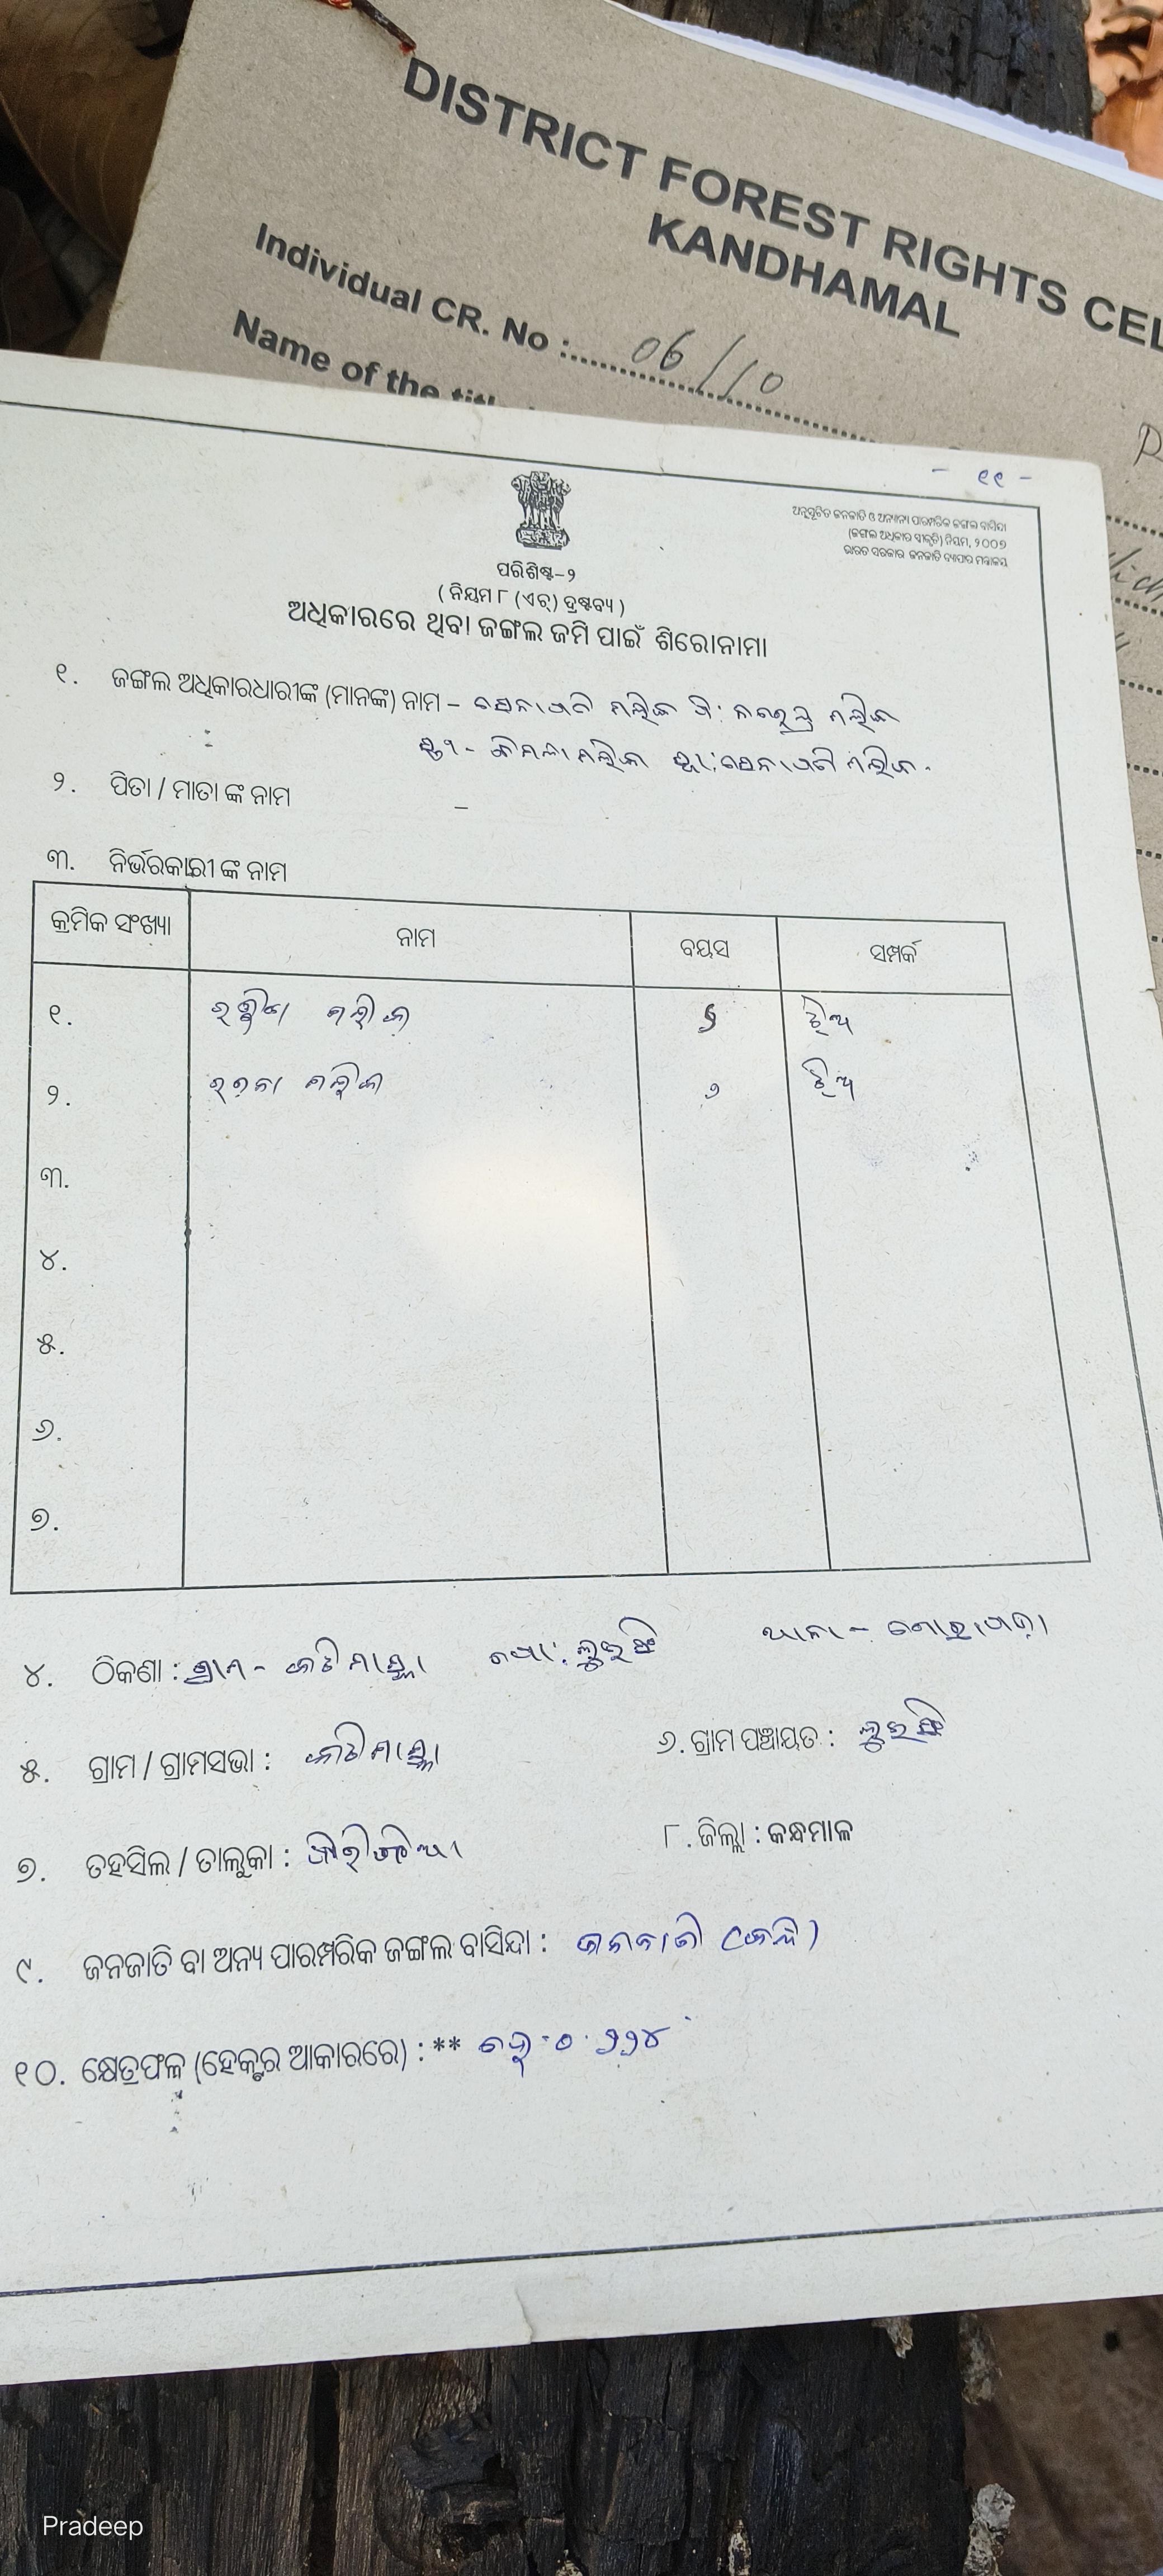 DISTRICT FOREST RIGHTS CEL
KANDHAMAL
Individual CR. No : 06/10
Name of the
- ୧୧ -
ଅନୁସୂଚିତ ଜନଜାତି ଓ ଅନ୍ୟାନ୍ୟ ପାରମ୍ପରିକ ଜଙ୍ଗଲ ବାସିନ୍ଦା
(ଜଙ୍ଗଲ ଅଧିକାର ସ୍ବୀକୃତି) ନିୟମ, ୨୦୦୭
ଭାରତ ସରକାର ଜନଜାତି ବ୍ୟାପାର ମନ୍ତ୍ରାଳୟ
ପରିଶିଷ୍ଟ-୨
( ନିୟମ ୮ (ଏଚ୍) ଦ୍ରଷ୍ଟବ୍ୟ )
ଅଧିକାରରେ ଥିବା ଜଙ୍ଗଲ ଜମି ପାଇଁ ଶିରୋନାମା
୧. ଜଙ୍ଗଲ ଅଧିକାରଧାରୀଙ୍କ (ମାନଙ୍କ) ନାମ – ସେନାପତି ମଲିକ ପି: ନରେନ୍ଦ୍ର ମଲିକ
ମଲିକ ସ୍ବା: ସେନାପତି ମଲିକ
୨. ପିତା / ମାତା ଙ୍କ ନାମ –
୩. ନିର୍ଭରକାରୀ ଙ୍କ ନାମ
କ୍ରମିକ ସଂଖ୍ୟା ନାମ ବୟସ ସମ୍ପର୍କ
୧. ମଲିକ ଝିଅ
୨. ମଲିକ ୨ ଝିଅ
୩.
୪.
୫.
୬.
୭.
୪. ଠିକଣା : ଗ୍ରାମ - ପୋ: ଲୁଇସିଂ ଥାନା -
୫. ଗ୍ରାମ / ଗ୍ରାମସଭା :
୬. ଗ୍ରାମ ପଞ୍ଚାୟତ : ଲୁଇସିଂ
୭. ତହସିଲ / ତାଲୁକା : ଖିରିଙ୍ଗିଆ
୮. ଜିଲ୍ଲା : କନ୍ଧମାଳ
୯. ଜନଜାତି ବା ଅନ୍ୟ ପାରମ୍ପରିକ ଜଙ୍ଗଲ ବାସିନ୍ଦା : ଜନଜାତି
୧୦. କ୍ଷେତ୍ରଫଳ (ହେକ୍ଟର ଆକାରରେ) : ** ହେ - ୦.୨୨୪
Pradeep